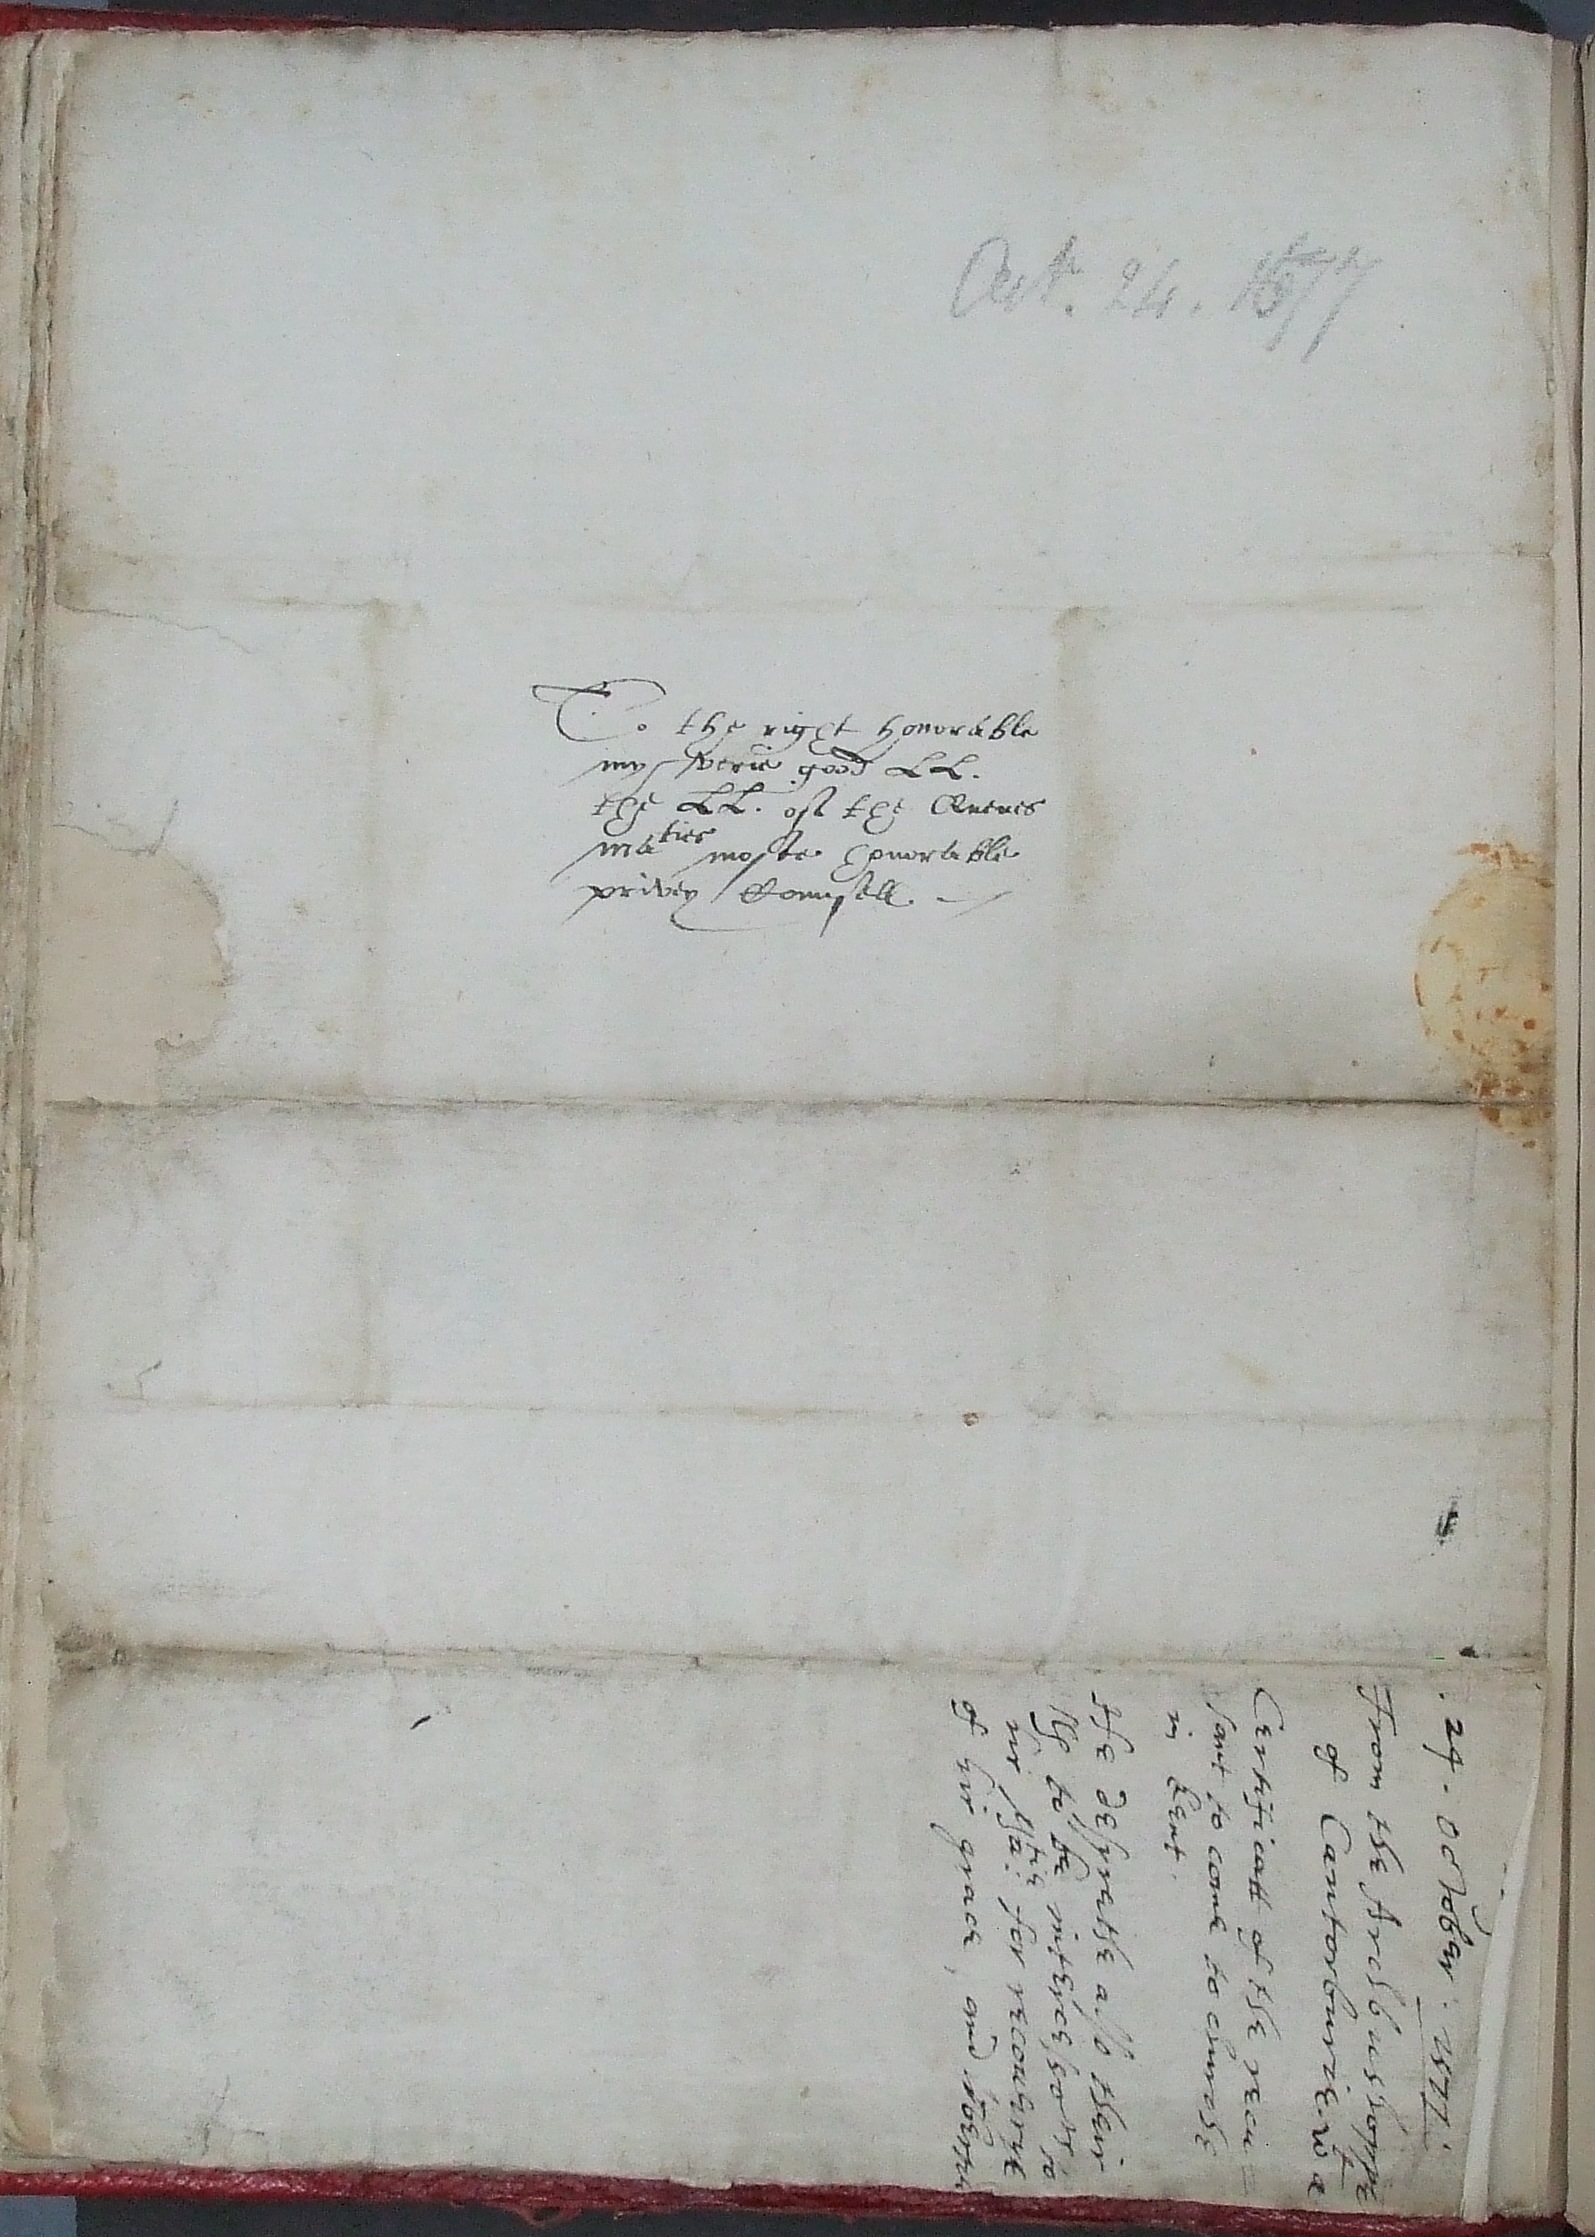 Oct. 24. 1577
To the right honorable
my verie good LL.
the LL. of the Quenes
maties moste honorable
privey Counsell.
. 24. October. 1577.
From the Archbisshoppe
of Cantorburie. wt a
Certificatt of the recu=
sant to come to churche
in Kent.
He desyrethe also their
Ll to be intercessors to
hir Matie for recoverye
of hir grace, and